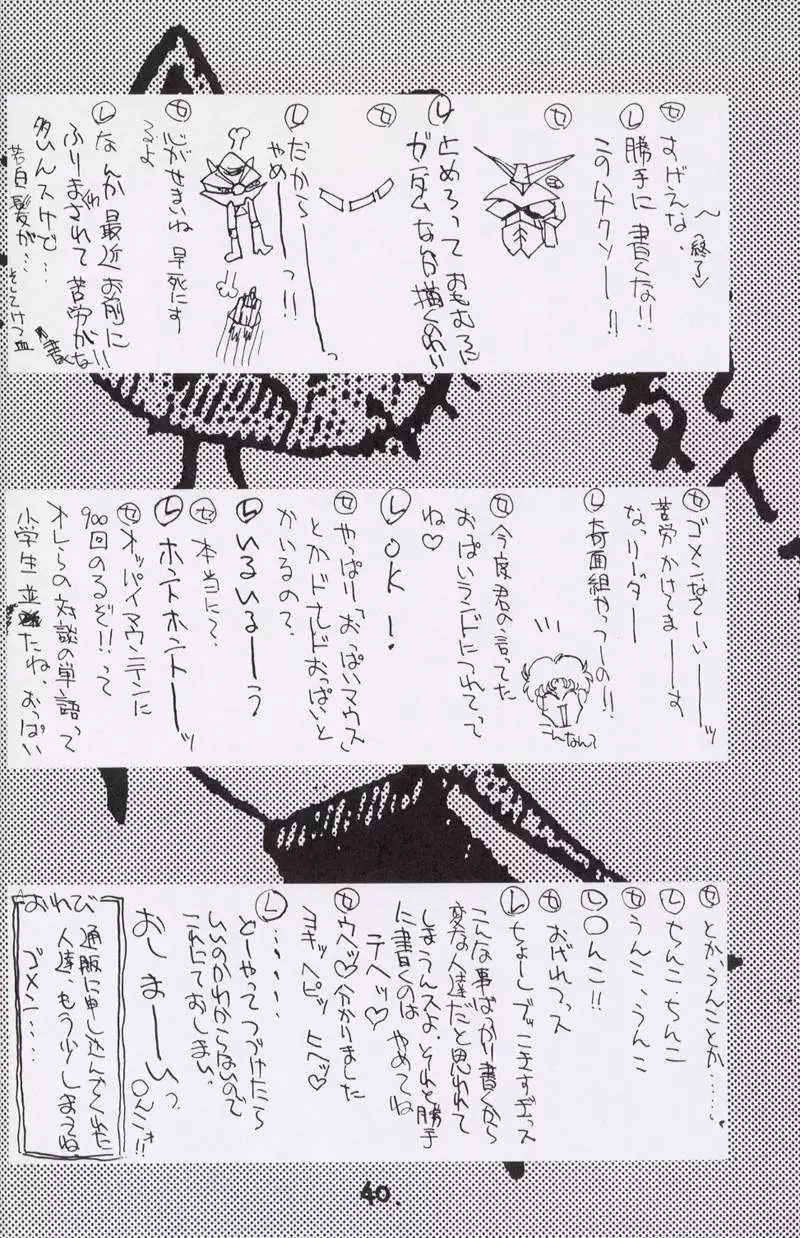 ㋝ すげえな、
〜終了♡
Ⓛ 勝手に書くな!!
このハナクソー!!
㋝
Ⓛ 止めろって おもむろに
ガンダムなんか描くのわい
㋝
Ⓛ だから——っ
やめ——っ!!
㋝ 心がせまいね 早死にす
るよ
Ⓛ なんか最近お前に!!
ふりまわされて 苦労がな
多いんスけど…
若白髪が…
㋝ ゴメンなさーいーーッ
苦労かけてまーーす
なっリーダー
Ⓛ 奇面組かっつーの!!
こんなんて
㋝ 今度君の言ってた
おっぱいランドにつれてって
ね♡
Ⓛ OK!
㋝ やっぱり「おっぱいマウス」
とかドナルドおっぱいと
かいるの?
Ⓛ いるいるーーう
㋝ 本当に?
Ⓛ ホントホントーーッ
㋝ オッパイマウンテンに
900回のるぞ!!って
オレらの対談の単語って
小学生並だね、おっぱい
㋝ とか、うんことか……
Ⓛ ちんこ、ちんこ
㋝ うんこ、うんこ
Ⓛ ○んこ!!
㋝ おげれつっス
Ⓛ ちょーしブッこきすぎっス
こんな事ばっかり書くから
変な人達だと思われて
しまうんスよ、それと勝手
に書くのは やめてね
テヘッ♡
㋝ ウヘッ♡分かりました
ヨキッ ヘピッ ヒヘッ♡
Ⓛ ……
どーやってつづけたら
いいのかわからないので
これにておしまい。
おしまーいっ
○んこ!!
おわび
通販に申し込んでくれた
人達、もう少しまってね
ゴメン…
40.